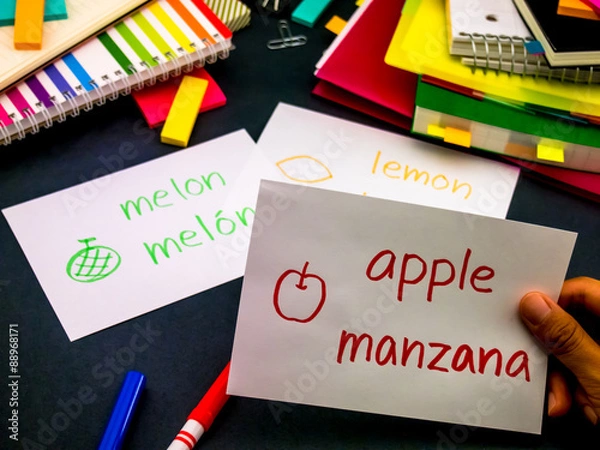 melon
melón
lemon
apple
manzana
Adobe Stock | #88968171